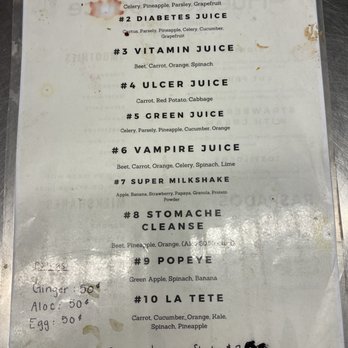 Celery, Pineapple, Parsley, Grapefruit
#2 DIABETES JUICE
Cactus, Parsely, Pineapple, Celery, Cucumber,
Grapefruit
#3 VITAMIN JUICE
Beet, Carrot, Orange, Spinach
#4 ULCER JUICE
Carrot, Red Potato, Cabbage
#5 GREEN JUICE
Celery, Parsely, Pineapple, Cucumber, Orange
#6 VAMPIRE JUICE
Beet, Carrot, Orange, Celery, Spinach, Lime
#7 SUPER MILKSHAKE
Apple, Banana, Strawberry, Papaya, Granola, Protein
Powder
#8 STOMACHE
CLEANSE
Beet, Pineapple, Orange,
#9 POPEYE
Green Apple, Spinach, Banana
Ginger: 50¢
Aloe: 50¢
Egg: 50¢
#10 LA TETE
Carrot, Cucumber, Orange, Kale,
Spinach, Pineapple